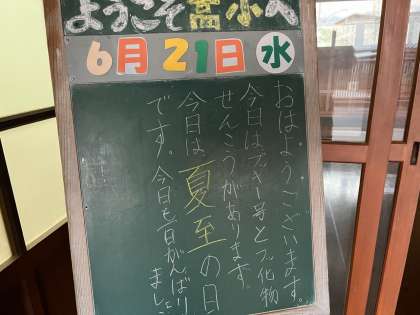 ようこそ 富小へ
6月21日 水
おはようございます。
今日はティー号と化物
せんこうがあります。
今日は夏至の日
です。今日も1日がんばり
ましょ